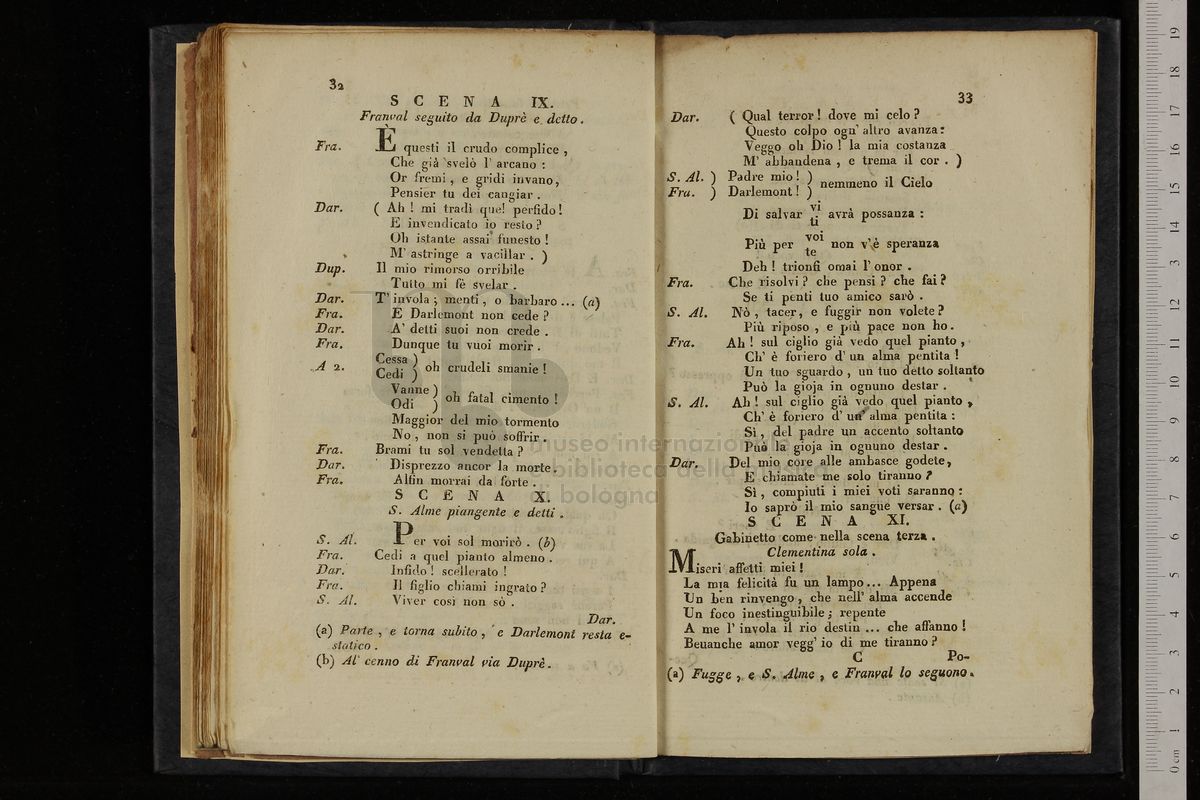 32
SCENA IX.
Franval seguito da Duprè e detto.
Fra. È questi il crudo complice,
Che già svelò l' arcano:
Or fremi, e gridi invano,
Pensier tu dei cangiar.
Dar. ( Ah! mi tradì quel perfido!
E invendicato io resto?
Oh istante assai funesto!
M' astringe a vacillar. )
Dup. Il mio rimorso orribile
Tutto mi fè svelar.
Dar. T' invola; menti, o barbaro... (a)
Fra. E Darlemont non cede?
Dar. A' detti suoi non crede.
Fra. Dunque tu vuoi morir.
A 2. Cessa ) Cedi ) oh crudeli smanie!
Vanne ) Odi ) oh fatal cimento!
Maggior del mio tormento
No, non si può soffrir.
Fra. Brami tu sol vendetta?
Dar. Disprezzo ancor la morte.
Fra. Alfin morrai da forte.
SCENA X.
S. Alme piangente e detti.
S. Al. Per voi sol morirò. (b)
Fra. Cedi a quel pianto almeno.
Dar. Infido! scellerato!
Fra. Il figlio chiami ingrato?
S. Al. Viver così non sò.
Dar.
(a) Parte, e torna subito, e Darlemont resta e-
statico.
(b) Al cenno di Franval via Duprè.
33
Dar. ( Qual terror! dove mi celo?
Questo colpo ogn' altro avanza:
Veggo oh Dio! la mia costanza
M' abbandena, e trema il cor. )
S. Al. ) Padre mio! )
Fra. ) Darlemont! ) nemmeno il Cielo
Di salvar vi ti avrà possanza:
Più per voi te non v'è speranza
Deh! trionfi omai l' onor.
Fra. Che risolvi? che pensi? che fai?
Se ti penti tuo amico sarò.
S. Al. Nò, tacer, e fuggir non volete?
Più riposo, e più pace non ho.
Fra. Ah! sul ciglio già vedo quel pianto,
Ch' è foriero d' un alma pentita!
Un tuo sguardo, un tuo detto soltanto
Può la gioja in ognuno destar.
S. Al. Ah! sul ciglio già vedo quel pianto,
Ch' è foriero d' un' alma pentita:
Sì, del padre un accento soltanto
Può la gioja in ognuno destar.
Dar. Del mio core alle ambasce godete,
E chiamate me solo tiranno?
Sì, compiuti i miei voti saranno:
Io saprò il mio sangue versar. (a)
SCENA XI.
Gabinetto come nella scena terza.
Clementina sola.
Miseri affetti miei!
La mia felicità fu un lampo... Appena
Un ben rinvengo, che nell' alma accende
Un foco inestinguibile; repente
A me l' invola il rio destin ... che affanno!
Beuanche amor vegg' io di me tiranno?
C Po-
(a) Fugge, e S. Alme, e Franval lo seguono.
museo internazionale
e biblioteca della musica
di bologna
0 cm 1 2 3 4 5 6 7 8 9 10 11 12 13 14 15 16 17 18 19